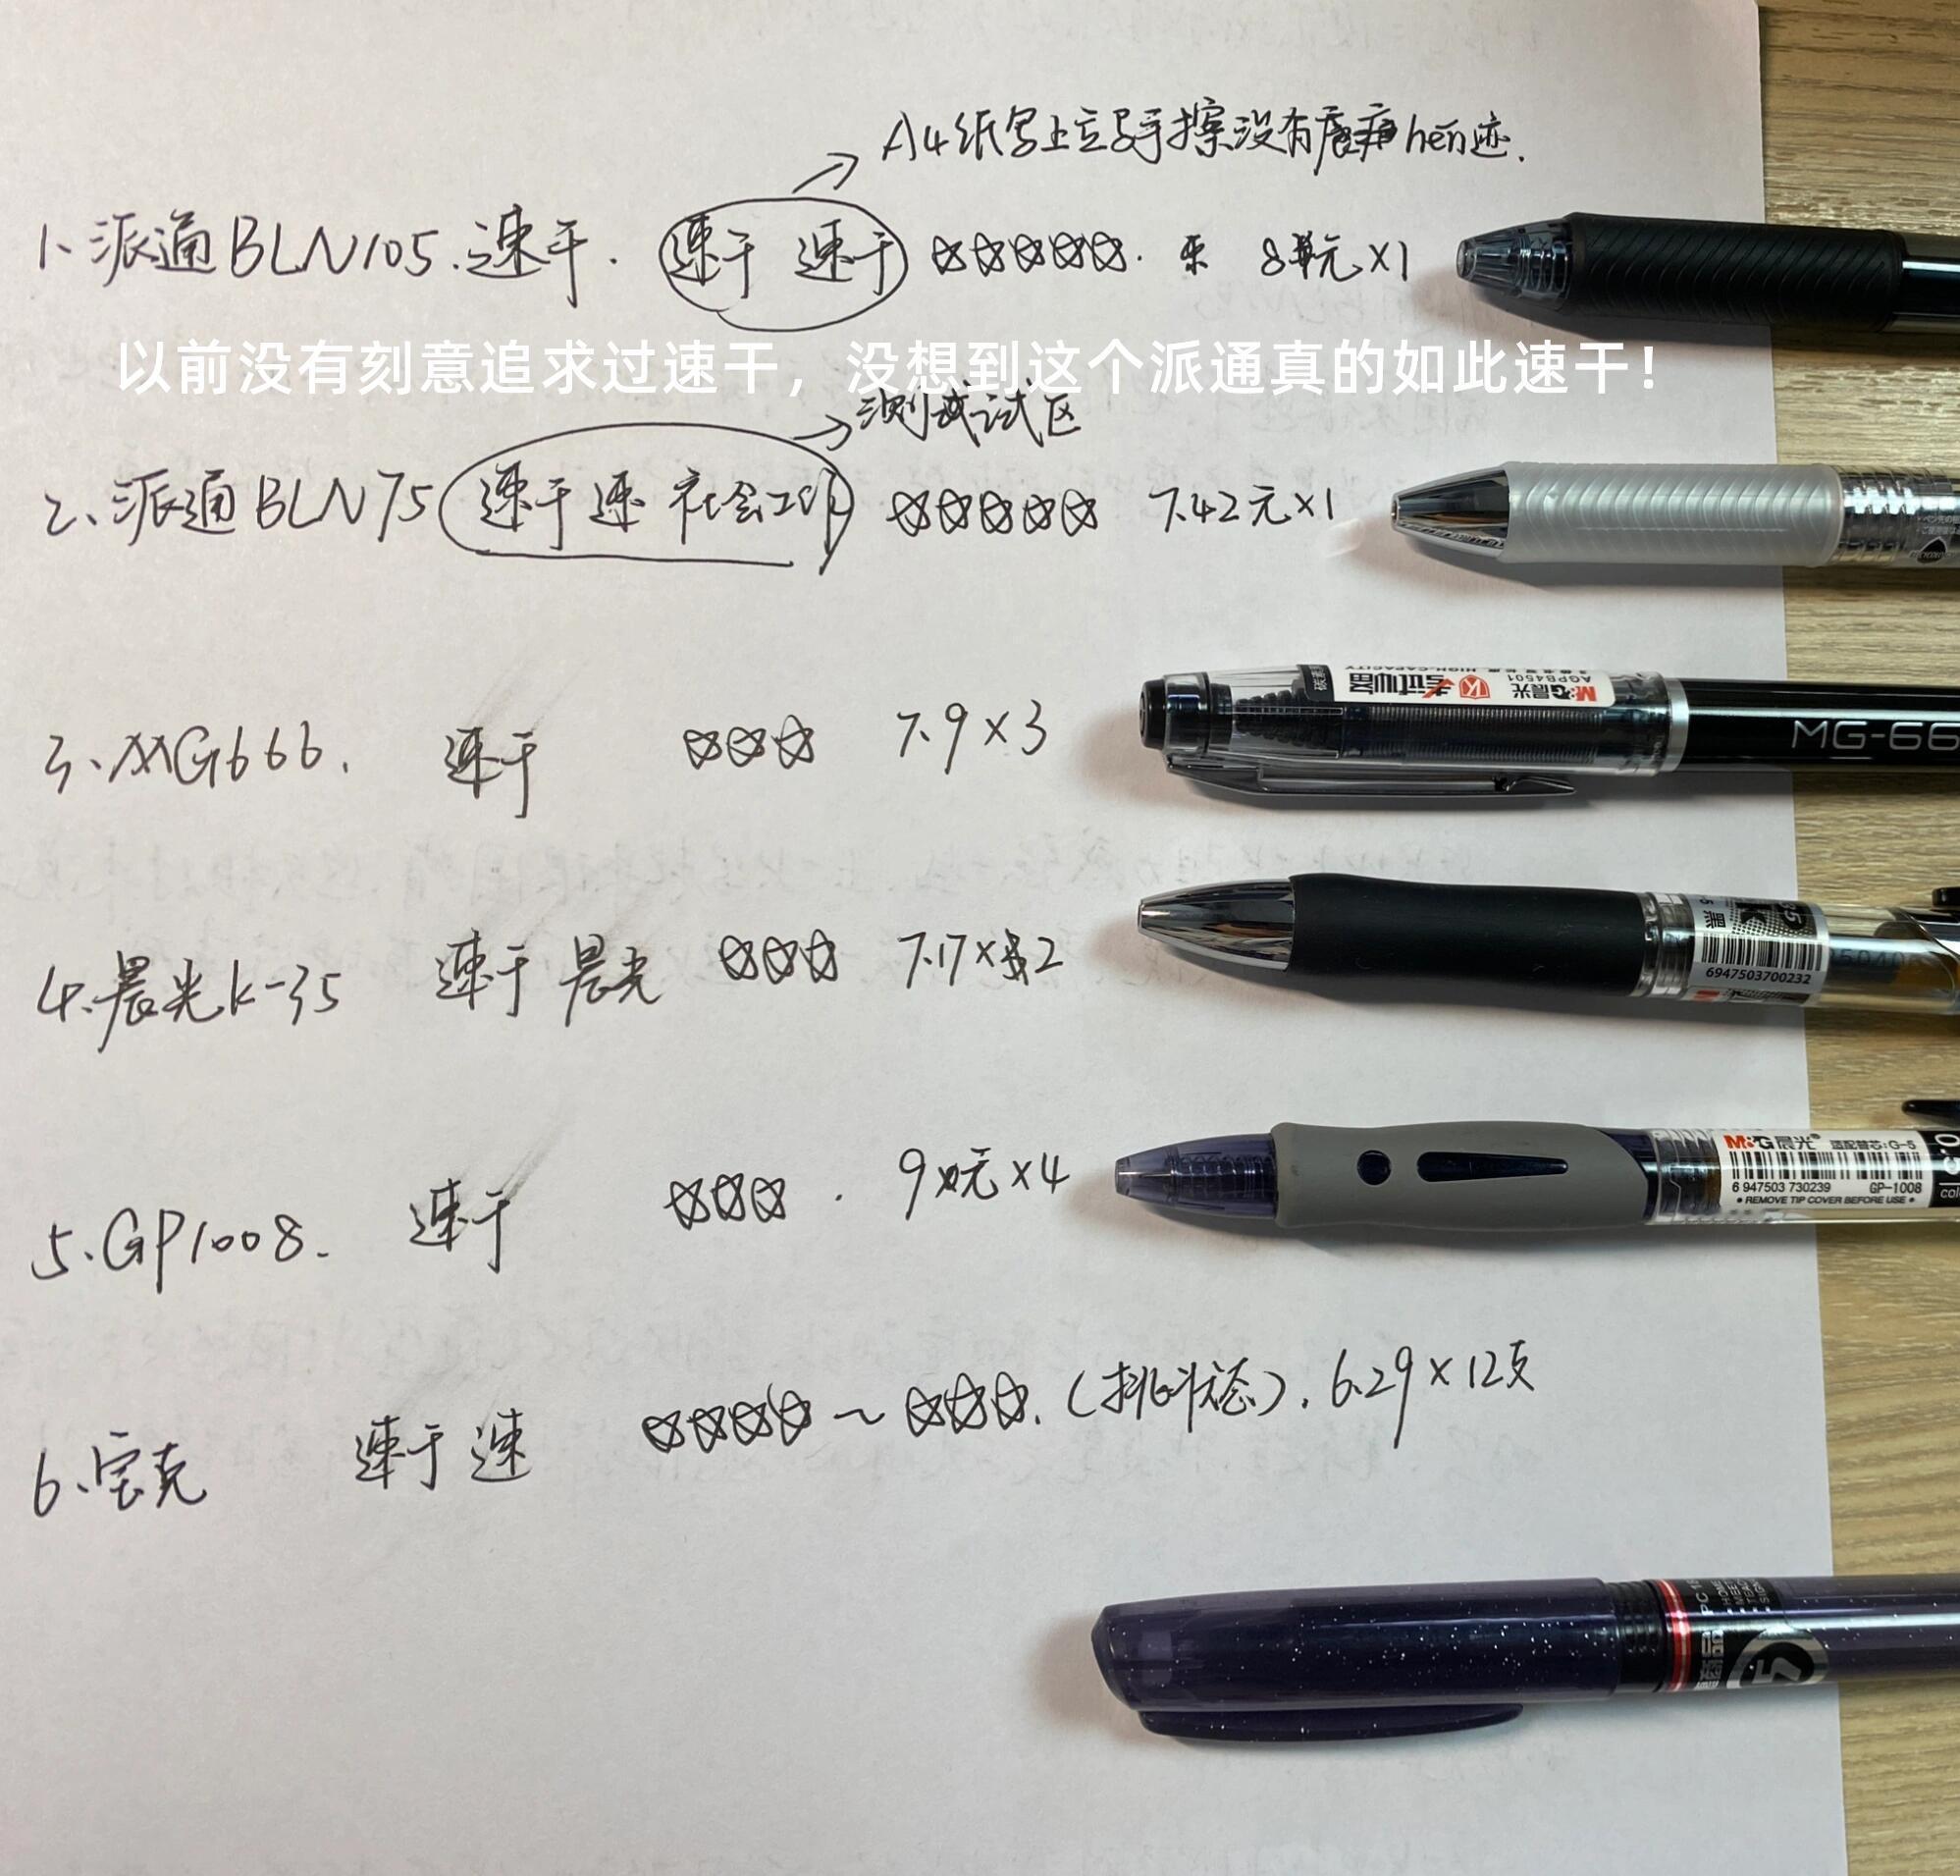 A4纸写上立马手擦没有hen迹.
1、派通BLN105.速干. 速干 速干 ☆☆☆☆☆. 8元×1
以前没有刻意追求过速干，没想到这个派通真的如此速干！
测试试区
2、派通BLN75 速干 速 社会工作 ☆☆☆☆☆ 7.42元×1
3、MG666. 速干 ☆☆☆ 7.9×3
考试必备 M&G晨光 AGPB4501
HIGH-CAPACITY
MG-66
4、晨光K-35 速干 晨光 ☆☆☆ 7.17×2
黑 K 35
6947503700232
5、GP1008. 速干 ☆☆☆. 9元×4
M&G晨光 适配替芯:G-5
6 947503 730239 GP-1008
• REMOVE TIP COVER BEFORE USE •
6、宝克 速干 速 ☆☆☆☆~☆☆☆.(挑状态). 6.29×12支